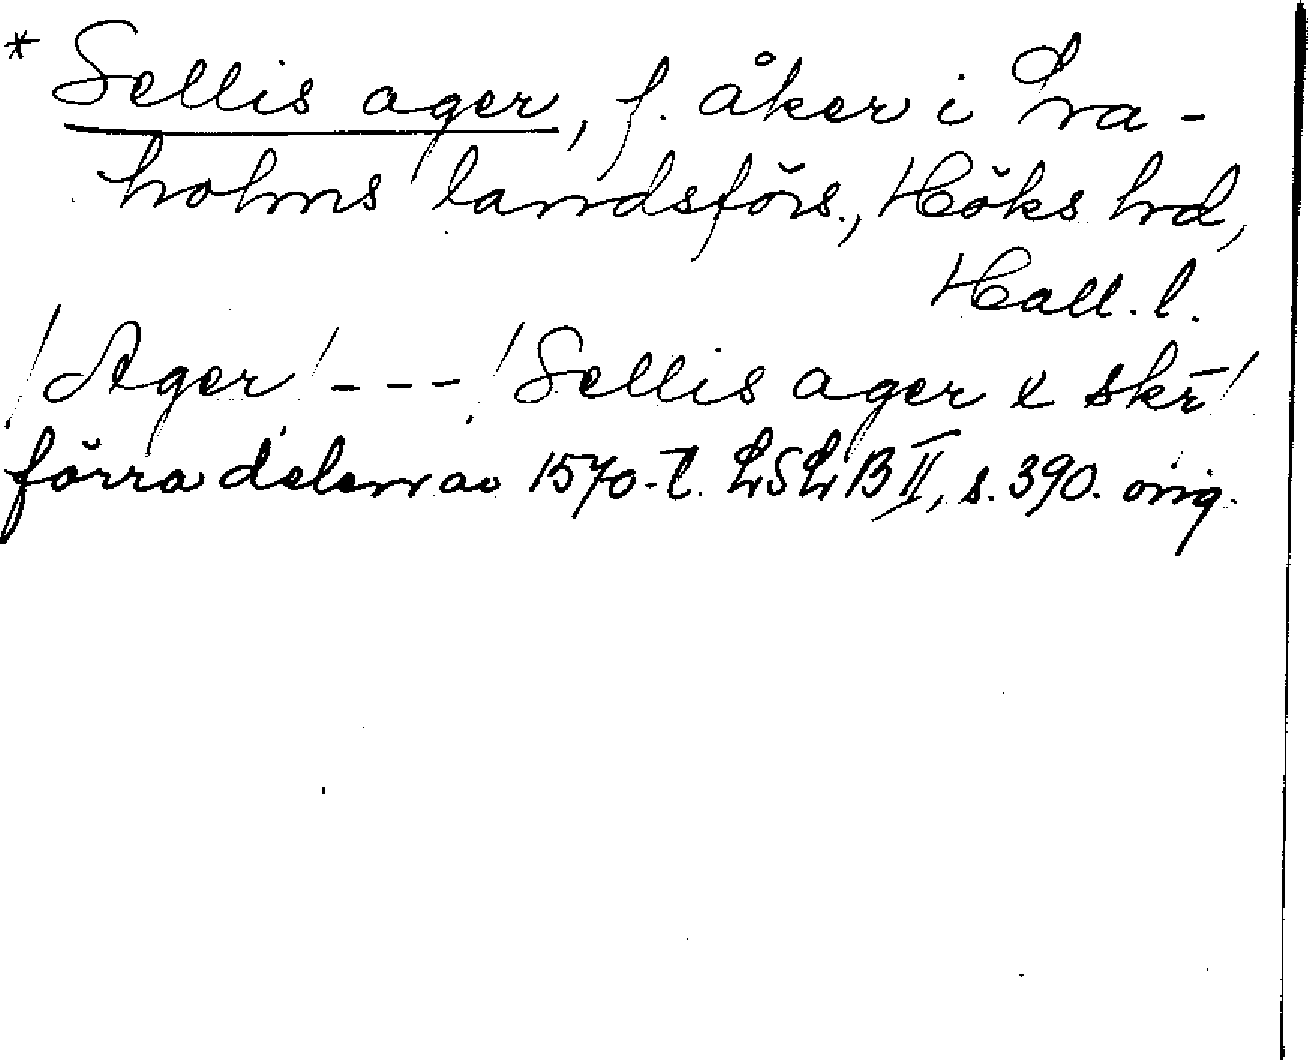 * Sellis ager, f. åker i La-
holms landsförs., Höks hd,
Hall. l.
/Ager/ --- /Sellis ager x skr̄/
förra delen av 1570-t. LSLB II, s. 390. orig.